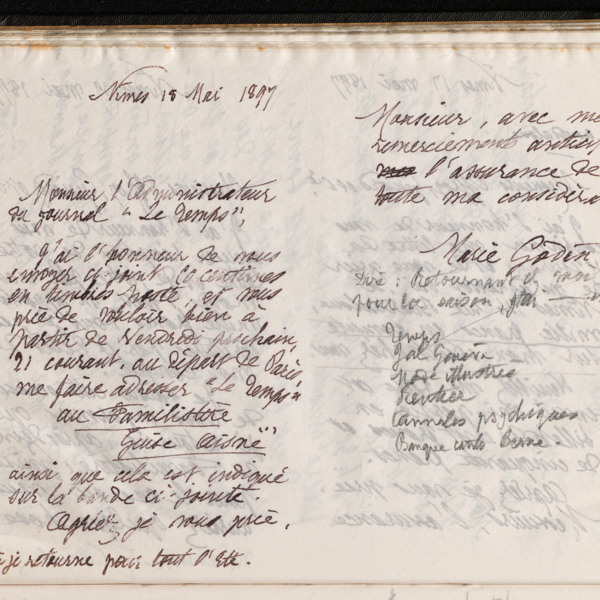 Nimes 18 Mai 1897
Monsieur l'Administrateur
du journal "Le Temps",
J'ai l'honneur de vous
envoyer ci-joint 60 centimes
en timbres-poste, et vous
prie de vouloir bien à
partir de vendredi prochain,
21 courant, au départ de Paris
me faire adresser "Le Temps"
au Familistère
Guise Aisne
ainsi que cela est indiqué
sur la bande ci-jointe.
Agréez, je vous prie,
je retourne pour tout l'Eté.
Monsieur, avec me
remerciements
l'assurance de
toute ma considéra
Marie Godin
Dire : Retournant
pour la saison,
Temps
Gal
Mode illustrée
Rentier
Annales psychiques
Banque